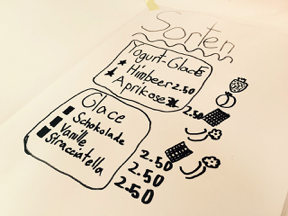 Sorten
Yogurt-Glace
Himbeer 2.50
Aprikose 2.50
Glace
Schokolade 2.50
Vanille 2.50
Stracciatella 2.50